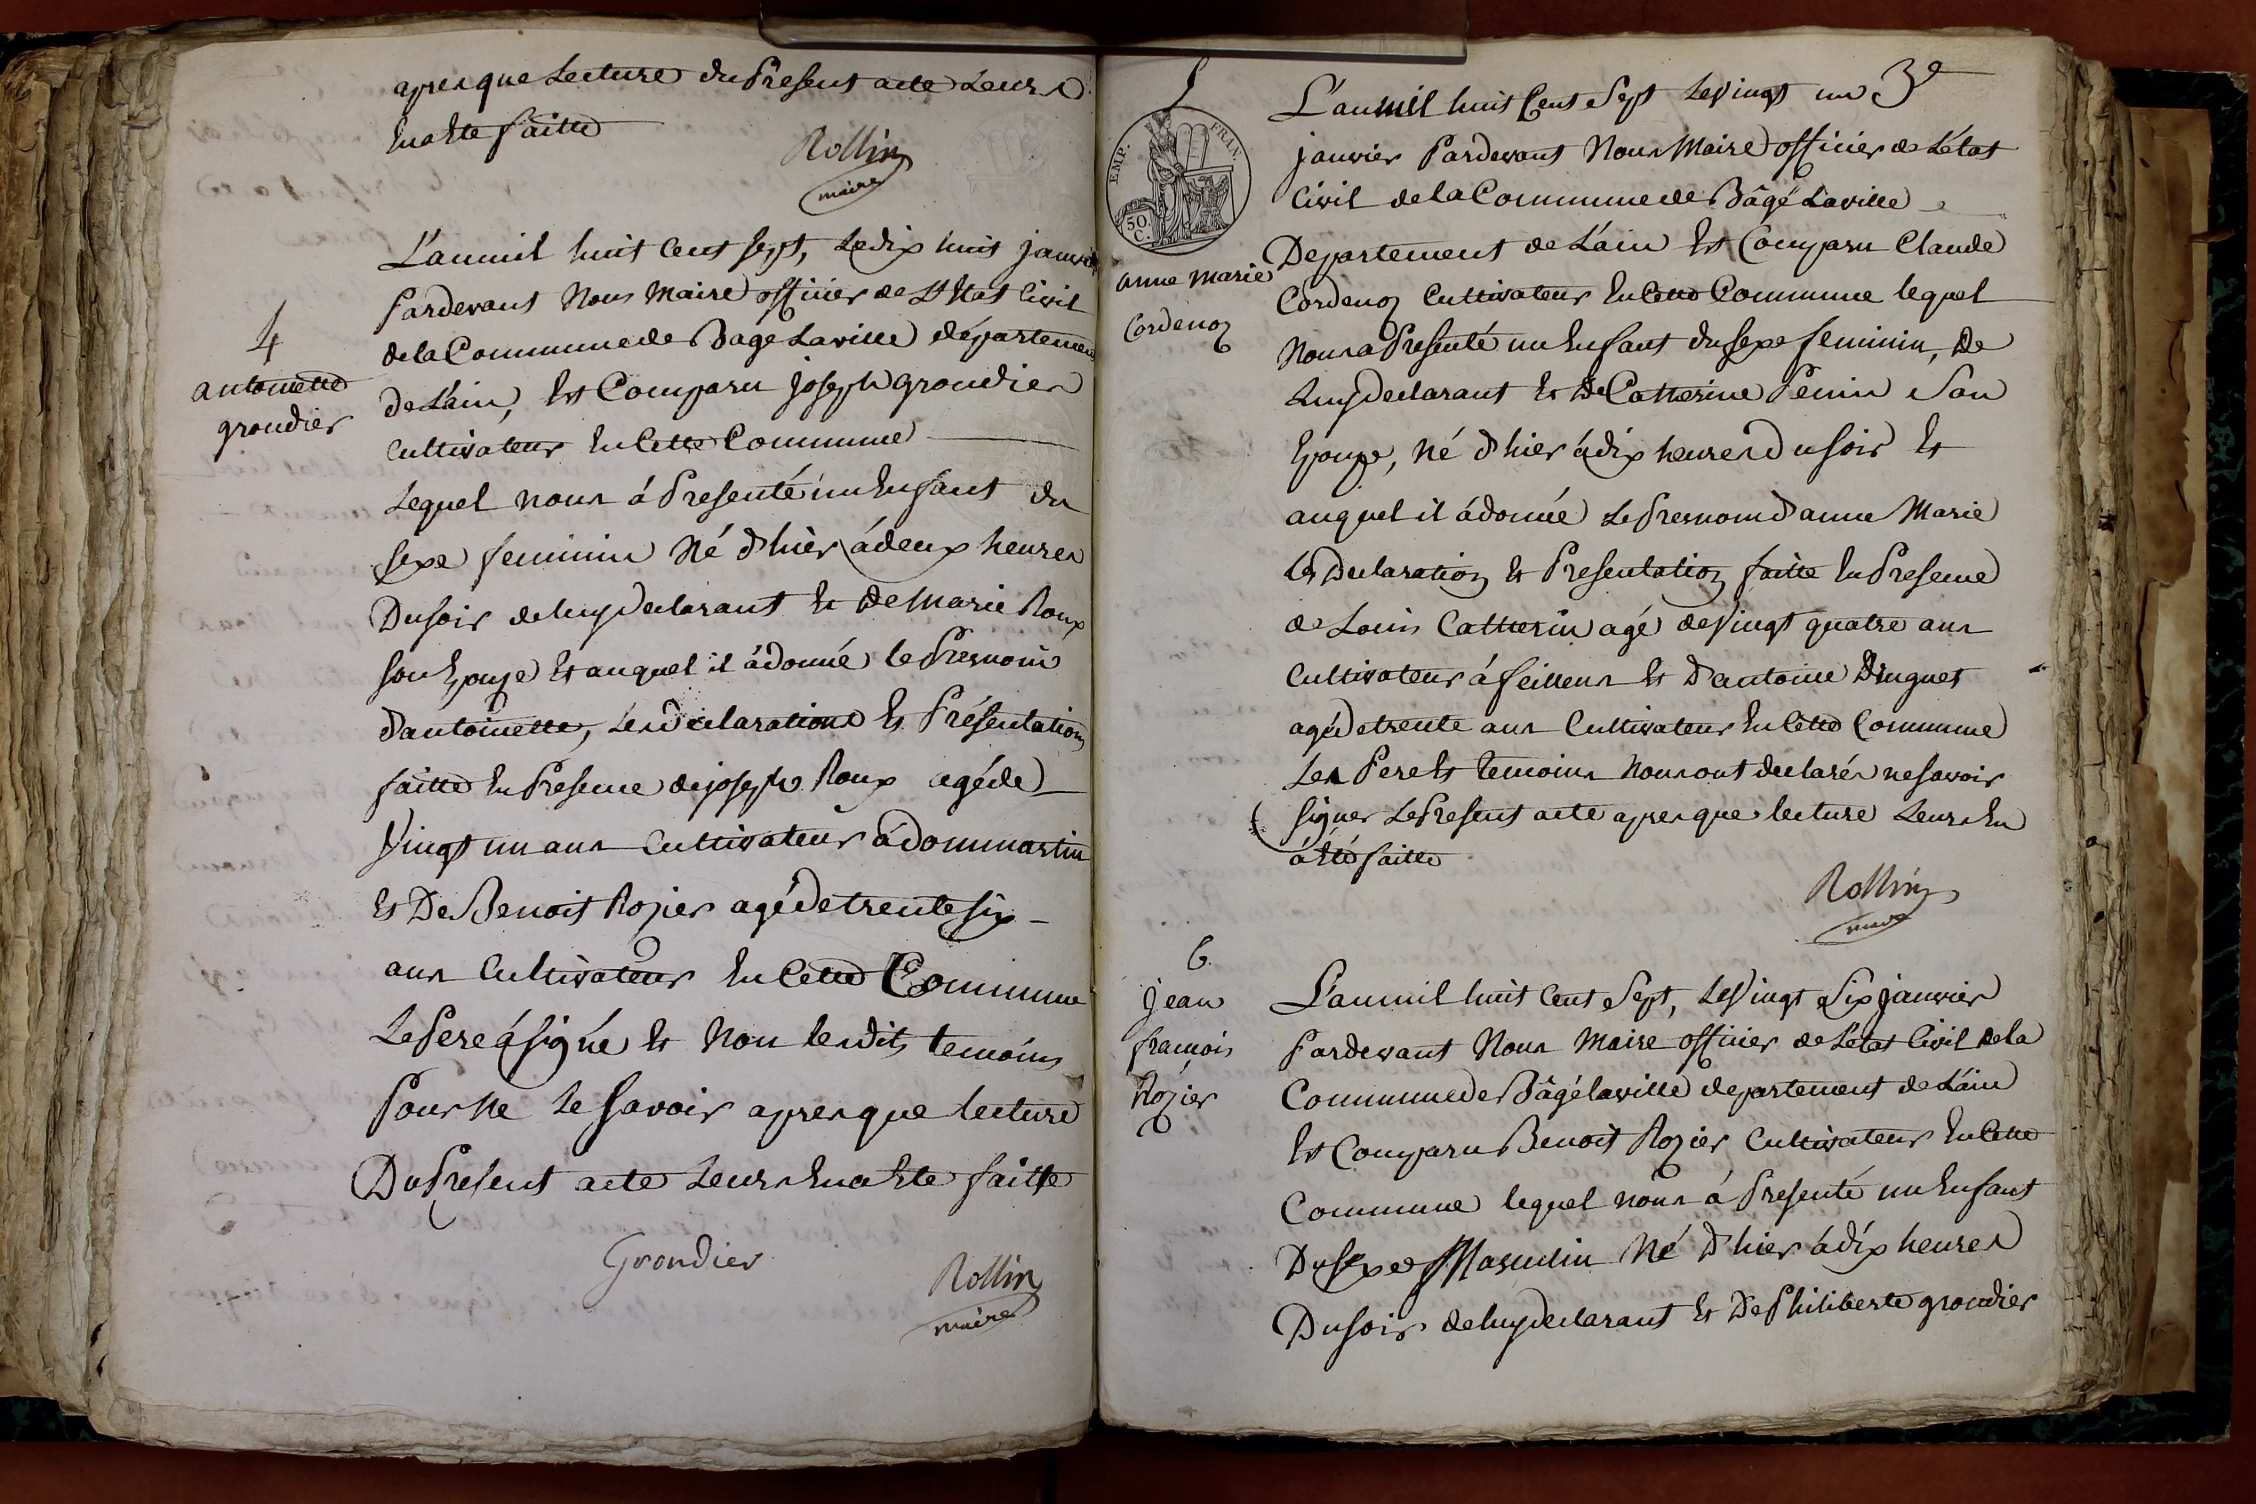 apres que Lecture du Present acte Leurs
En a Ete faitte
Rollin
maire
L'an mil huit Cent Sept, Le dix huit janvier
Pardevant Nous Maire officier de L'Etat Civil
de la Commune de Bagé Laville département
de L'ain, Est Comparu joseph grondier
Cultivateur En Cette Commune
4
antoinette
grondier
Lequel nous á Presenté un Enfant du
sexe feminin Né d'hièr á deux heures
Du soir de luy declarant Et de Marie Roux
son Epouse Et auquel il á donné le Presnom
d'antoinette, Les declarations Et Présentation
faitte En Presence de joseph Roux agé de
Vingt un ans Cultivateur á dommartin
Et De Benoit Rozier agé de trente six
ans Cultivateur En Cette Commune
Le Pere á signé Et Non les dits temoins
Pour Ne le savoir apres que lecture
Du Present acte Leurs En a Ete faitte
Grondier
Rollin
maire
5
3e
EMP. FRAN.
50
C.
anne Marie
Cordenoz
L'an mil huit Cent Sept Le Vingt un
janvier Pardevant Nous Maire officier de L'état
Civil de la Commune de Bâgé Laville
Departement de L'ain Est Comparu Claude
Cordenoz Cultivateur En Cette Commune lequel
Nous a Presenté un Enfant du sexe feminin, De
Luy declarant Et De Catherine Penin Son
Epouse, Né d'hier á dix heures Du soir Et
auquel il á donné Le Presnom d'anne Marie
Les Declaration Et Presentation faitte En Presence
de Louis Catherin agé de Vingt quatre ans
Cultivateur á feillens Et D'antoine Dinguet
agé de trente ans Cultivateur En Cette Commune
Les Pere Et temoins Nous ont declarés ne savoir
signer Le Present acte apres que lecture Leurs En
á Eté faitte
Rollin
maire
6.
jean
francois
Rozier
L'an mil huit Cent Sept, Le Vingt Six janvier
Pardevant Nous Maire officier de L'état Civil de la
Commune de Bâgé laville departement de L'ain
Est Comparu Benoit Rozier Cultivateur En Cette
Commune lequel nous á Presenté un Enfant
Du sexe Masculin Né D'hier á dix heures
Du soir de luy declarant Et De Philiberte grondier